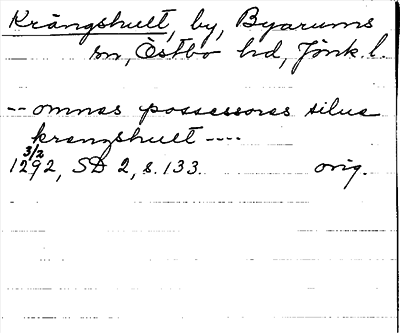 Krängshult, by, Byarums
sn, Östbo hd, Jönk. l.
-- omnes possessores silue
krengshult ----
3/2
1292, SD 2, s. 133. orig.